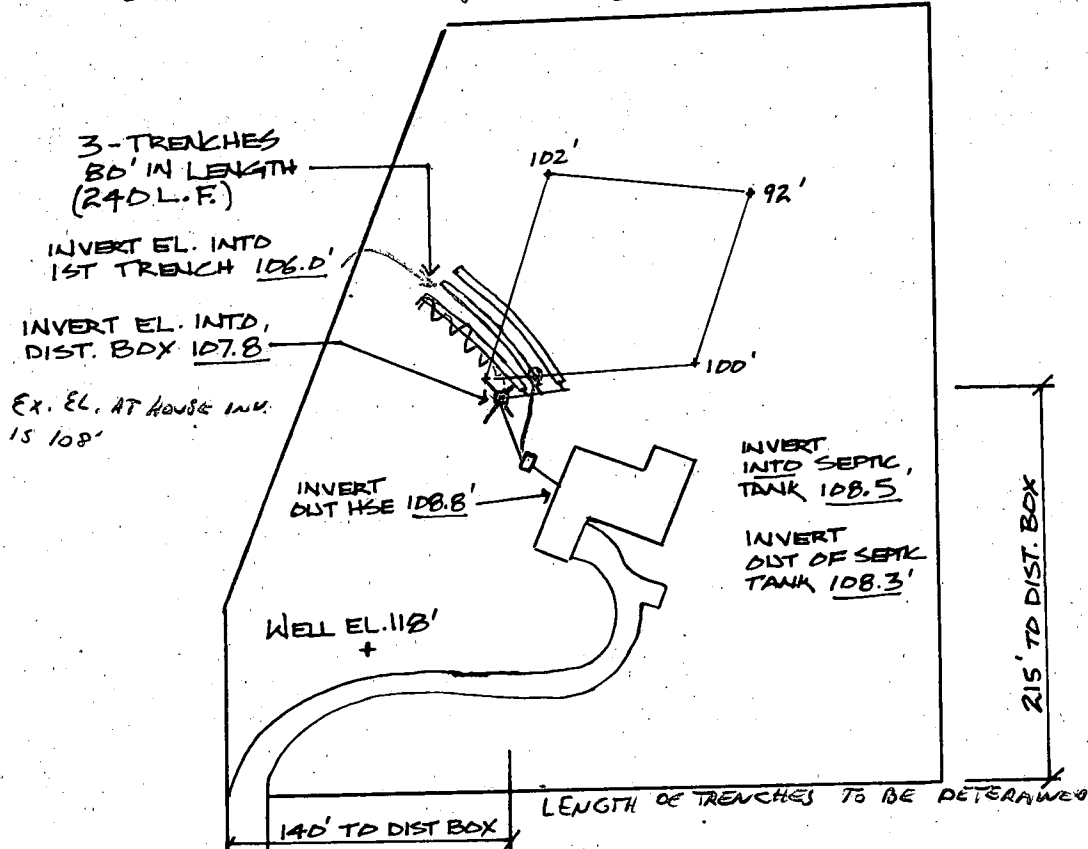 3-TRENCHES
80' IN LENGTH
(240 L.F.)
INVERT EL. INTO
1ST TRENCH 106.0'
INVERT EL. INTO,
DIST. BOX 107.8
EX. EL. AT HOUSE INV.
IS 108'
102'
92'
100'
INVERT
OUT HSE 108.8'
INVERT
INTO SEPTIC,
TANK 108.5
INVERT
OUT OF SEPTIC
TANK 108.3'
WELL EL. 118'
+
215' TO DIST. BOX
LENGTH OF TRENCHES TO BE DETERMINED
140' TO DIST BOX